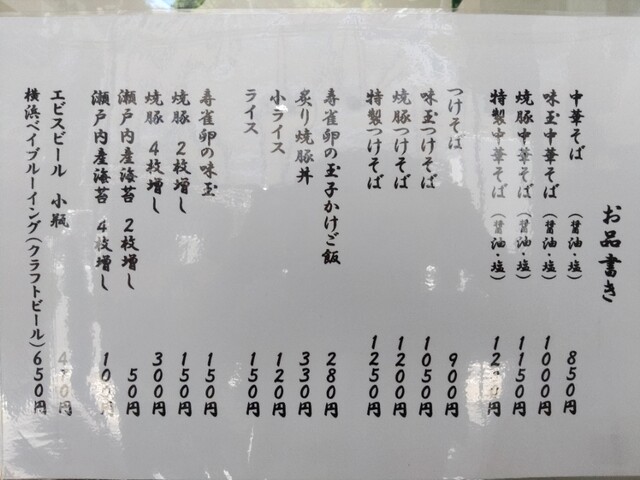 お品書き
中華そば（醤油・塩）850円
味玉中華そば（醤油・塩）1000円
焼豚中華そば（醤油・塩）1150円
特製中華そば（醤油・塩）
つけそば 900円
味玉つけそば 1050円
焼豚つけそば 1200円
特製つけそば 1250円
寿雀卵の玉子かけご飯 280円
炙り焼豚丼 330円
小ライス 120円
ライス 150円
寿雀卵の味玉 150円
焼豚 2枚増し 150円
焼豚 4枚増し 300円
瀬戸内産海苔 2枚増し 50円
瀬戸内産海苔 4枚増し 100円
エビスビール 小瓶
横浜ベイブルーイング(クラフトビール)650円